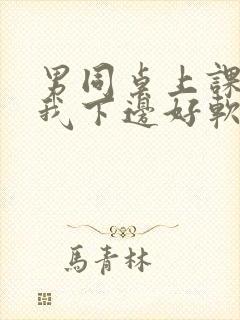 男同桌上課
我下邊好軟
馬青林